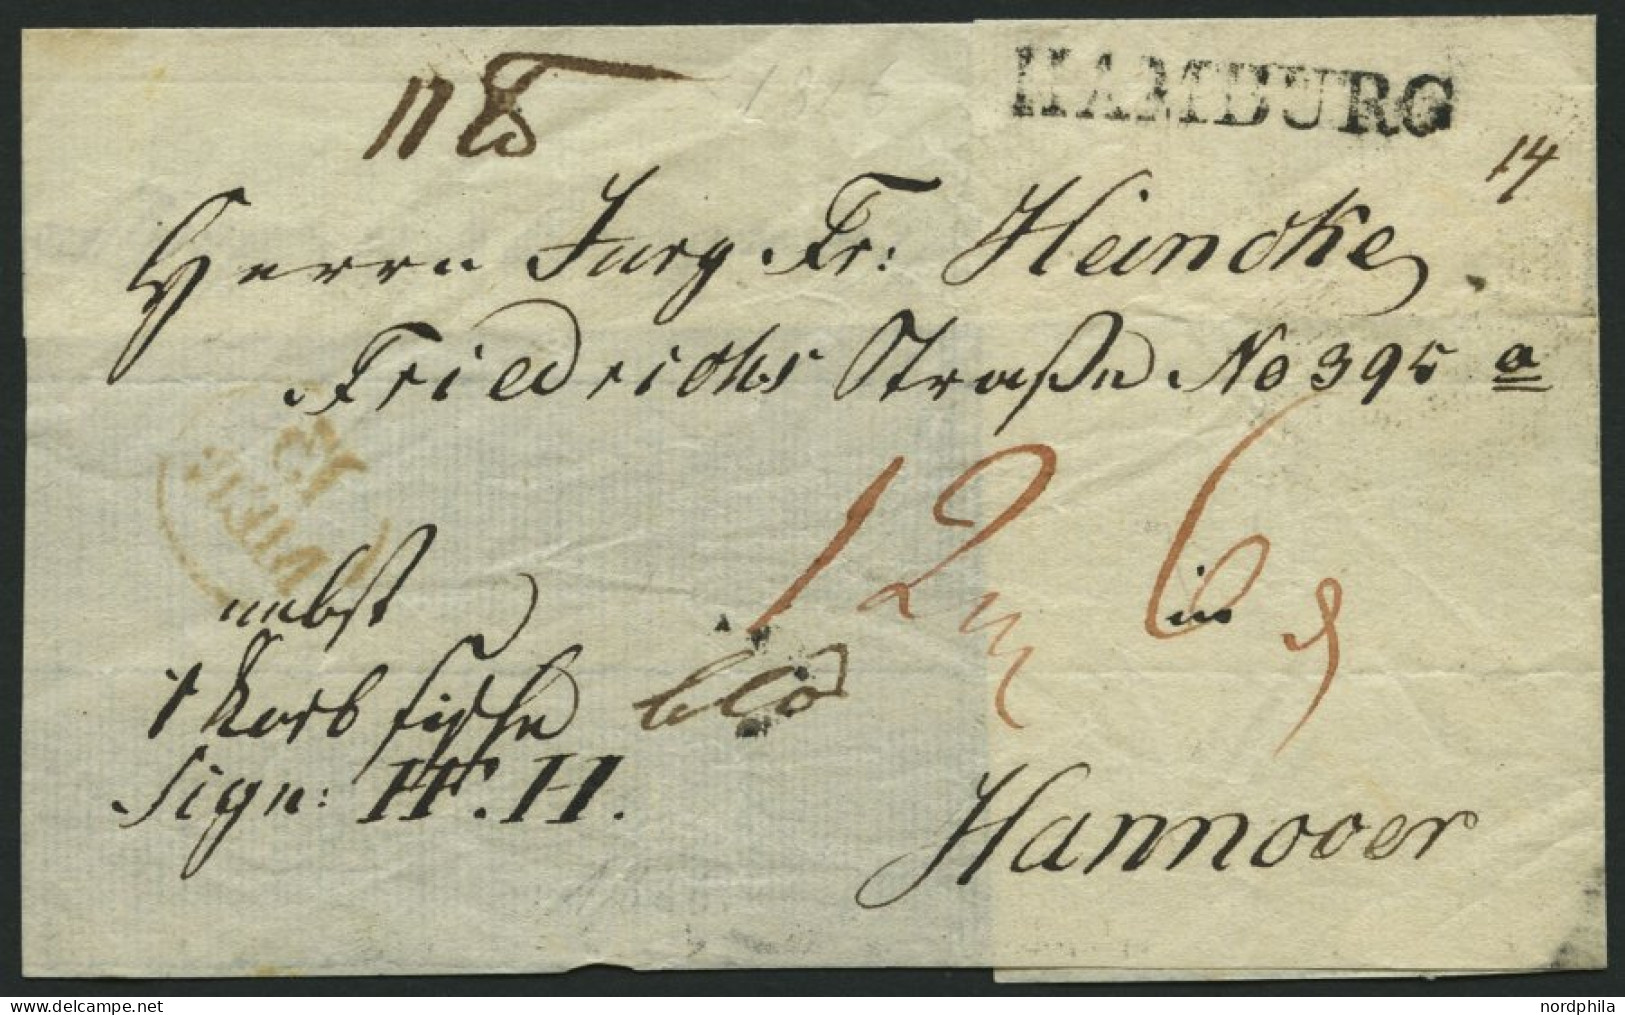 1826
HAMBURG
14
Herrn Jurg. Fr: Heincke
Friedrichs Straße No 395 a
12 6
nebst
in
1 Korb fische
Sign: H. H.
Hannover
nordphila